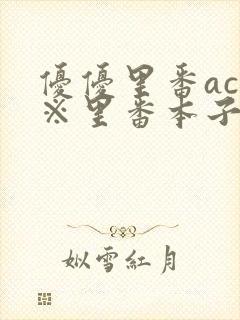 優優里番ac
※里番本子
姒雪紅月